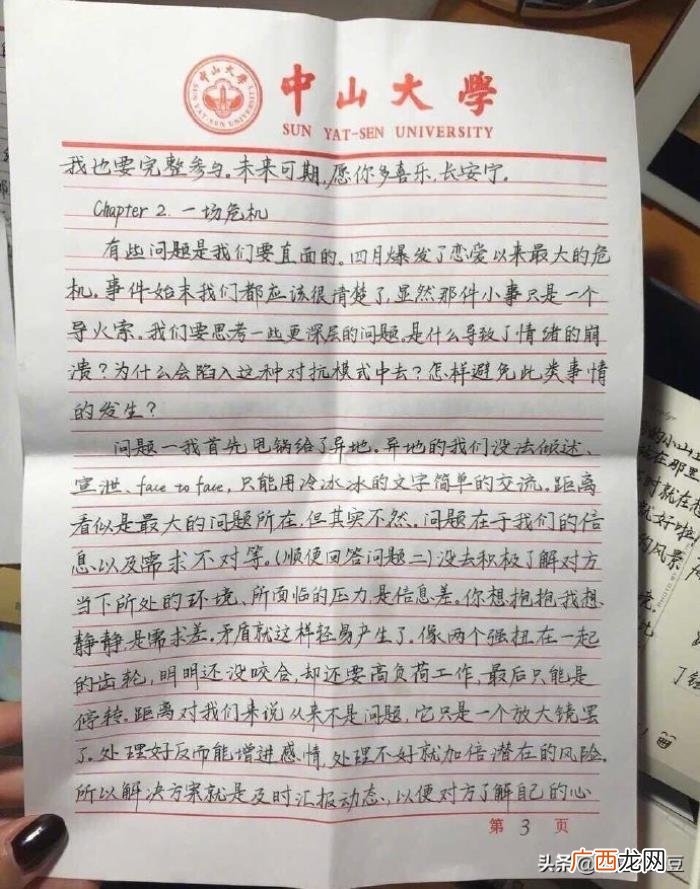 中山大学
SUN YAT-SEN UNIVERSITY
我也要完整参与。未来可期,愿你多喜乐,长安宁。
Chapter 2. 一场危机
有些问题是我们要直面的。四月爆发了恋爱以来最大的危
机。事件始末我们都应该很清楚了,显然那件小事只是一个
导火索。我们要思考一些更深层的问题。是什么导致了情绪的崩
溃?为什么会陷入这种对抗模式中去?怎样避免此类事情
的发生?
问题一我首先甩锅给了异地。异地的我们没法倾述、
宣泄、face to face,只能用冷冰冰的文字简单的交流。距离
看似是最大的问题所在,但其实不然。问题在于我们的信
息以及需求不对等。(顺便回答问题二)没去积极了解对方
当下所处的环境、所面临的压力是信息差。你想抱抱我想
静静是需求差。矛盾就这样轻易产生了,像两个强扭在一起
的齿轮,明明还没咬合,却还要高负荷工作,最后只能是
停转。距离对我们来说从来不是问题,它只是一个放大镜罢
了。处理好反而能增进感情,处理不好就加倍潜在的风险。
所以解决方案就是及时汇报动态、以便对方了解自己的心
第 3 页
的小山
在那里
时就在想
就好啦
的风景
头条
广西龙网
豆